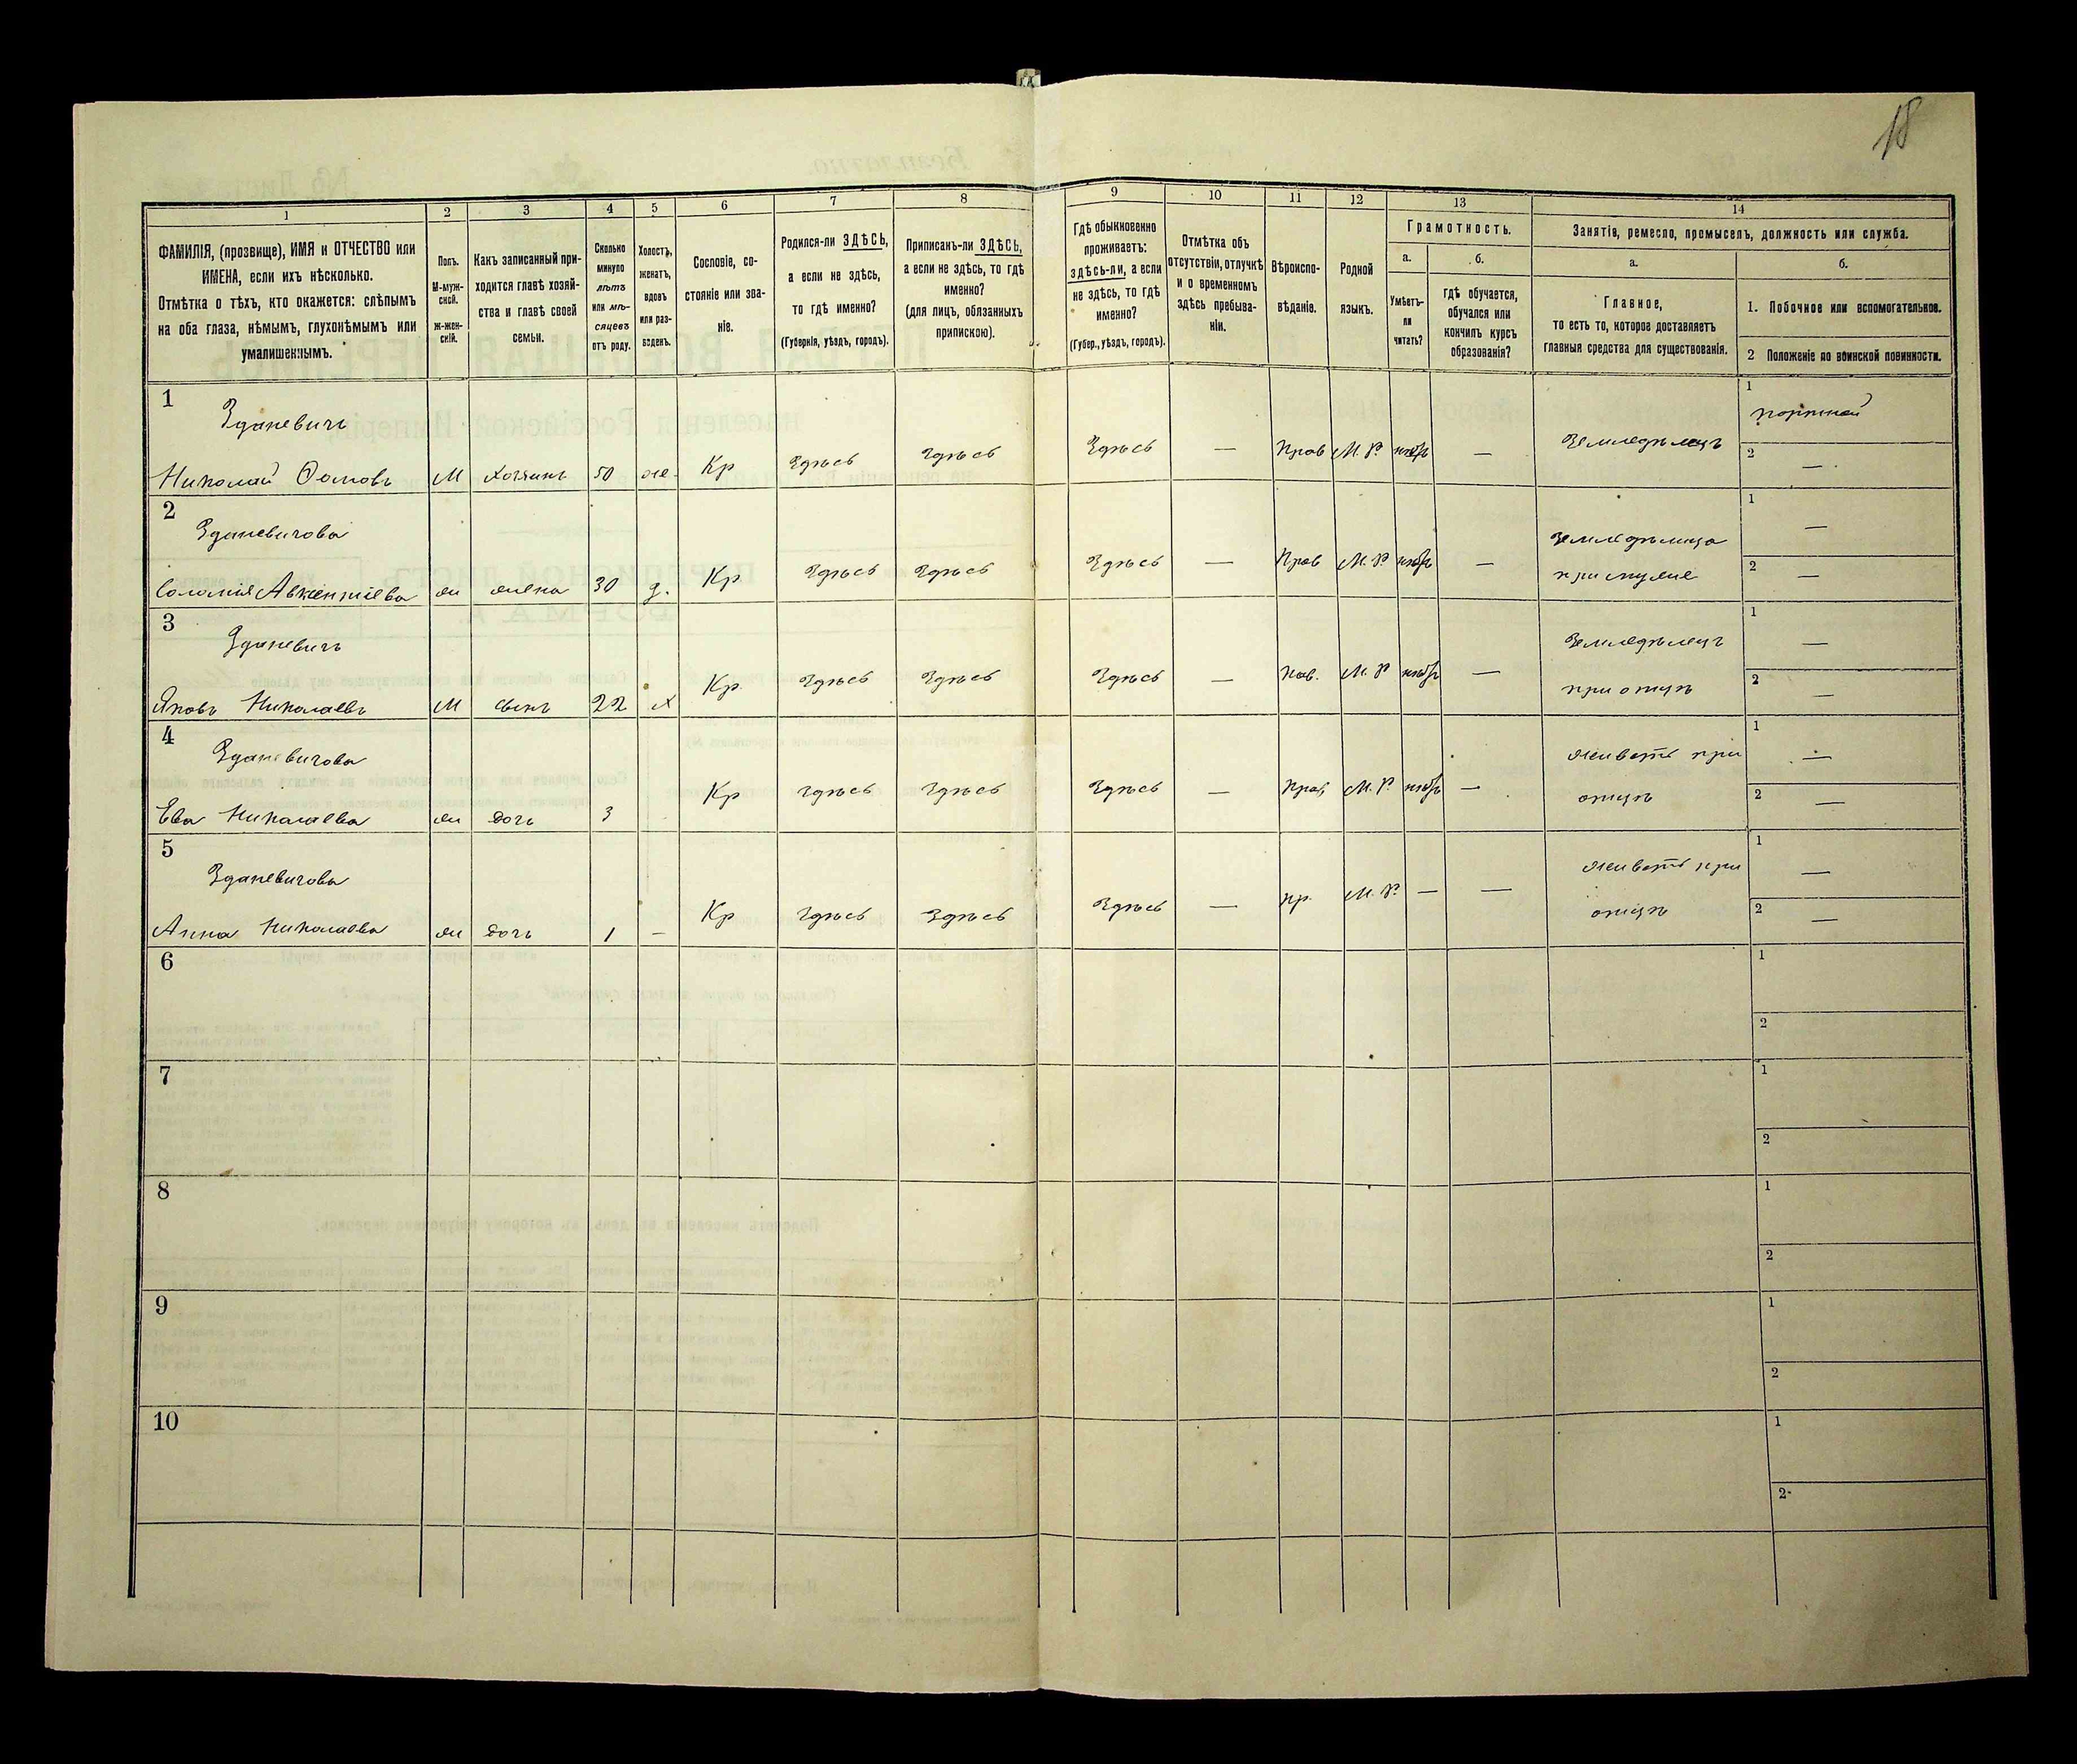 18
1 2 3 4 5 6 7 8 9 10 11 12 13 14
ФАМИЛІЯ, (прозвище), ИМЯ и ОТЧЕСТВО или
ИМЕНА, если ихъ нѣсколько.
Отмѣтка о тѣхъ, кто окажется: слѣпымъ
на оба глаза, нѣмымъ, глухонѣмымъ или
умалишеннымъ.
Полъ.
М-муж-
ской.
ж-жен-
скій.
Какъ записанный при-
ходится главѣ хозяй-
ства и главѣ своей
семьи.
Сколько
минуло
лѣтъ
или мѣ-
сяцевъ
отъ роду.
Холостъ,
женатъ,
вдовъ
или раз-
веденъ.
Сословіе, со-
стояніе или зва-
ніе.
Родился-ли ЗДѢСЬ,
а если не здѣсь,
то гдѣ именно?
(Губернія, уѣздъ, городъ).
Приписанъ-ли ЗДѢСЬ,
а если не здѣсь, то гдѣ
именно?
(для лицъ, обязанныхъ
припискою).
Гдѣ обыкновенно
проживаетъ:
здѣсь-ли, а если
не здѣсь, то гдѣ
именно?
(Губер., уѣздъ, городъ).
Отмѣтка объ
отсутствіи, отлучкѣ
и о временномъ
здѣсь пребыва-
ніи.
Вѣроиспо-
вѣданіе.
Родной
языкъ.
Грамотность.
а.
Умѣетъ-
ли
читать?
б.
гдѣ обучается,
обучался или
кончилъ курсъ
образованія?
Занятія, ремесло, промыселъ, должность или служба.
а.
Главное,
то есть то, которое доставляетъ
главныя средства для существованія.
б.
1. Побочное или вспомогательное.
2 Положеніе по воинской повинности.
1
Зданевичъ
Николай Ѳомовъ М хозяинъ 50 же. Кр Здѣсь Здѣсь Здѣсь — Прав М. Р. — Земледѣлецъ
1 портной
2 —
2
Зданевичова
Соломія Авксентіева ж жена 30 Кр. Здѣсь Здѣсь Здѣсь — Прав М. Р — Земледѣлица
при мужѣ
1 —
2 —
3
Зданевичъ
Яковъ Николаевъ М сынъ 22 х Кр. Здѣсь Здѣсь Здѣсь — М. Р — Земледѣлецъ
при отцѣ
1 —
2 —
4
Зданевичова
Ева Николаева ж дочь 3 Кр Здѣсь Здѣсь Здѣсь — Прав М. Р — Живетъ при
отцѣ
1 —
2 —
5
Зданевичова
Анна Николаева ж дочь 1 — Кр Здѣсь Здѣсь Здѣсь — пр. М. Р. — — Живетъ при
отцѣ
1 —
2 —
6
1
2
7
1
2
8
1
2
9
1
2
10
1
2